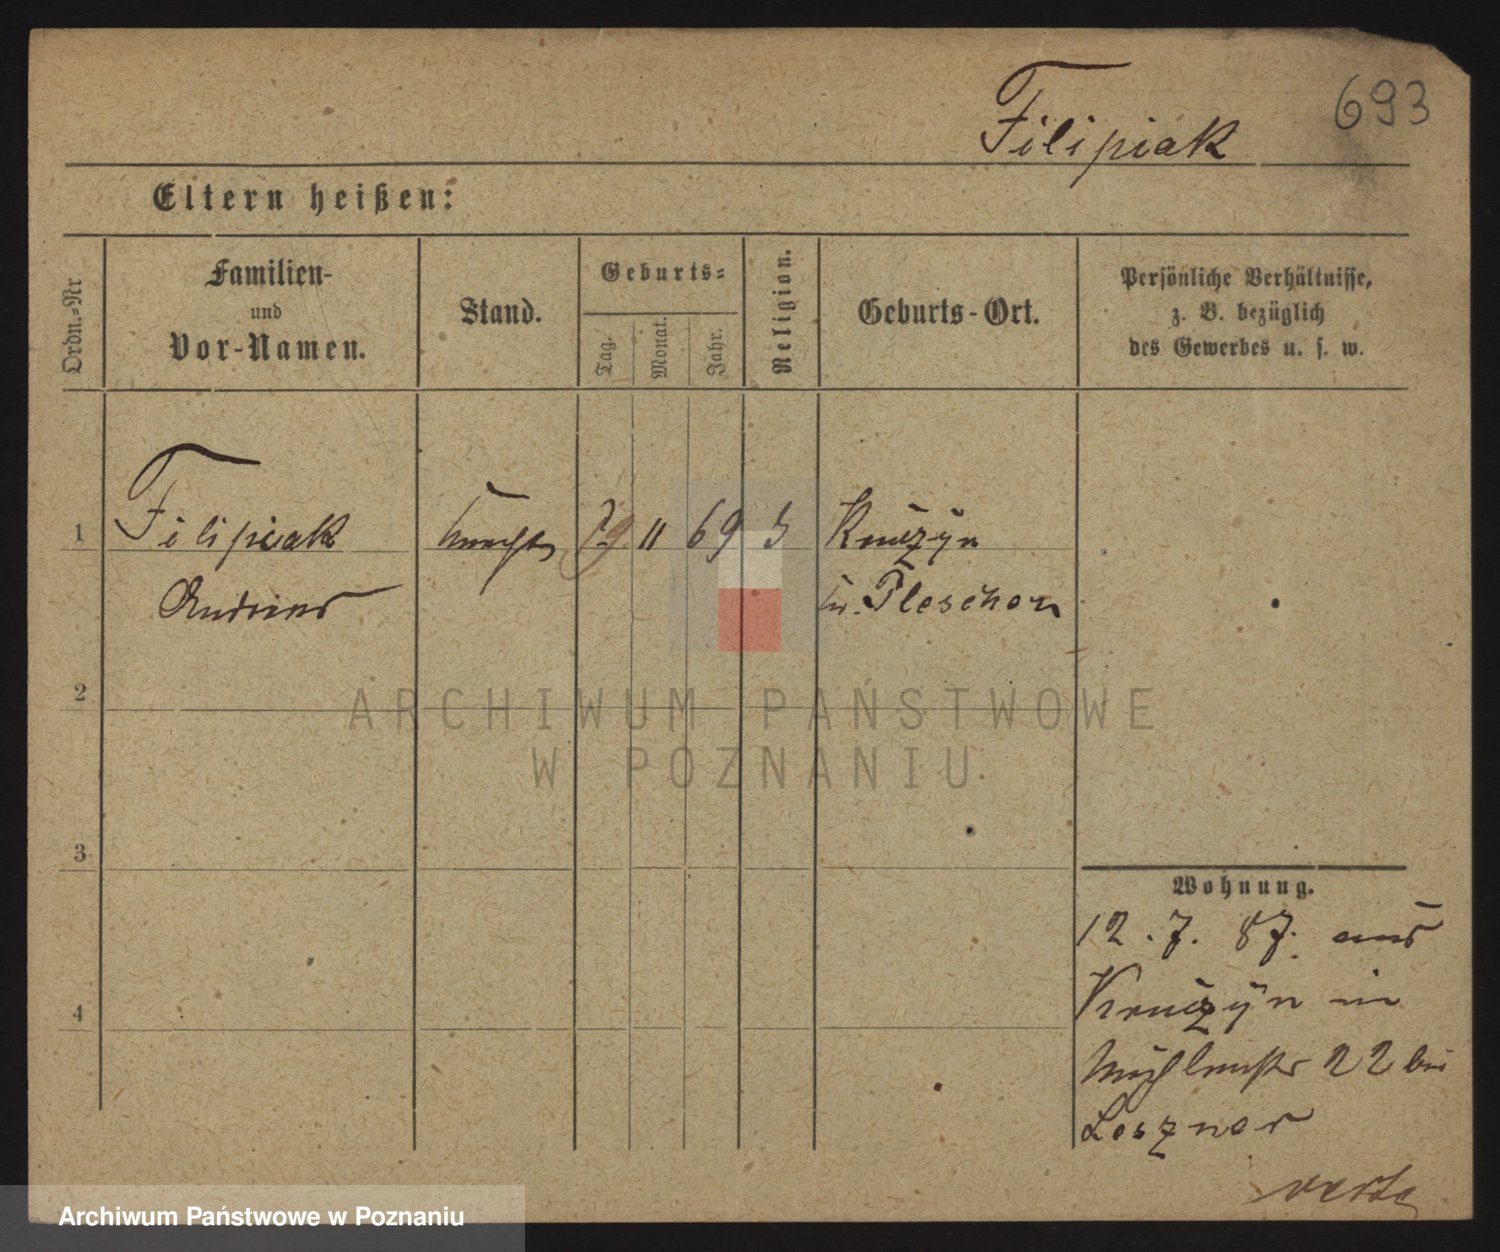 Filipiak
693
Eltern heißen:
Ordn.-Nr
Familien-
und
Vor-Namen.
Stand.
Geburts-
Tag.
Monat.
Jahr.
Religion.
Geburts-Ort.
Persönliche Verhältnisse,
z. B. bezüglich
des Gewerbes u. s. w.
1
Filipiak
Knecht
29 11 69
Kruczyn
Andreas
Kr. Pleschen
2
3
4
Wohnung.
12.7.87. aus
Kruczyn in
Mühlenstr 22 bei
verte
ARCHIWUM PAŃSTWOWE
W POZNANIU
Archiwum Państwowe w Poznaniu